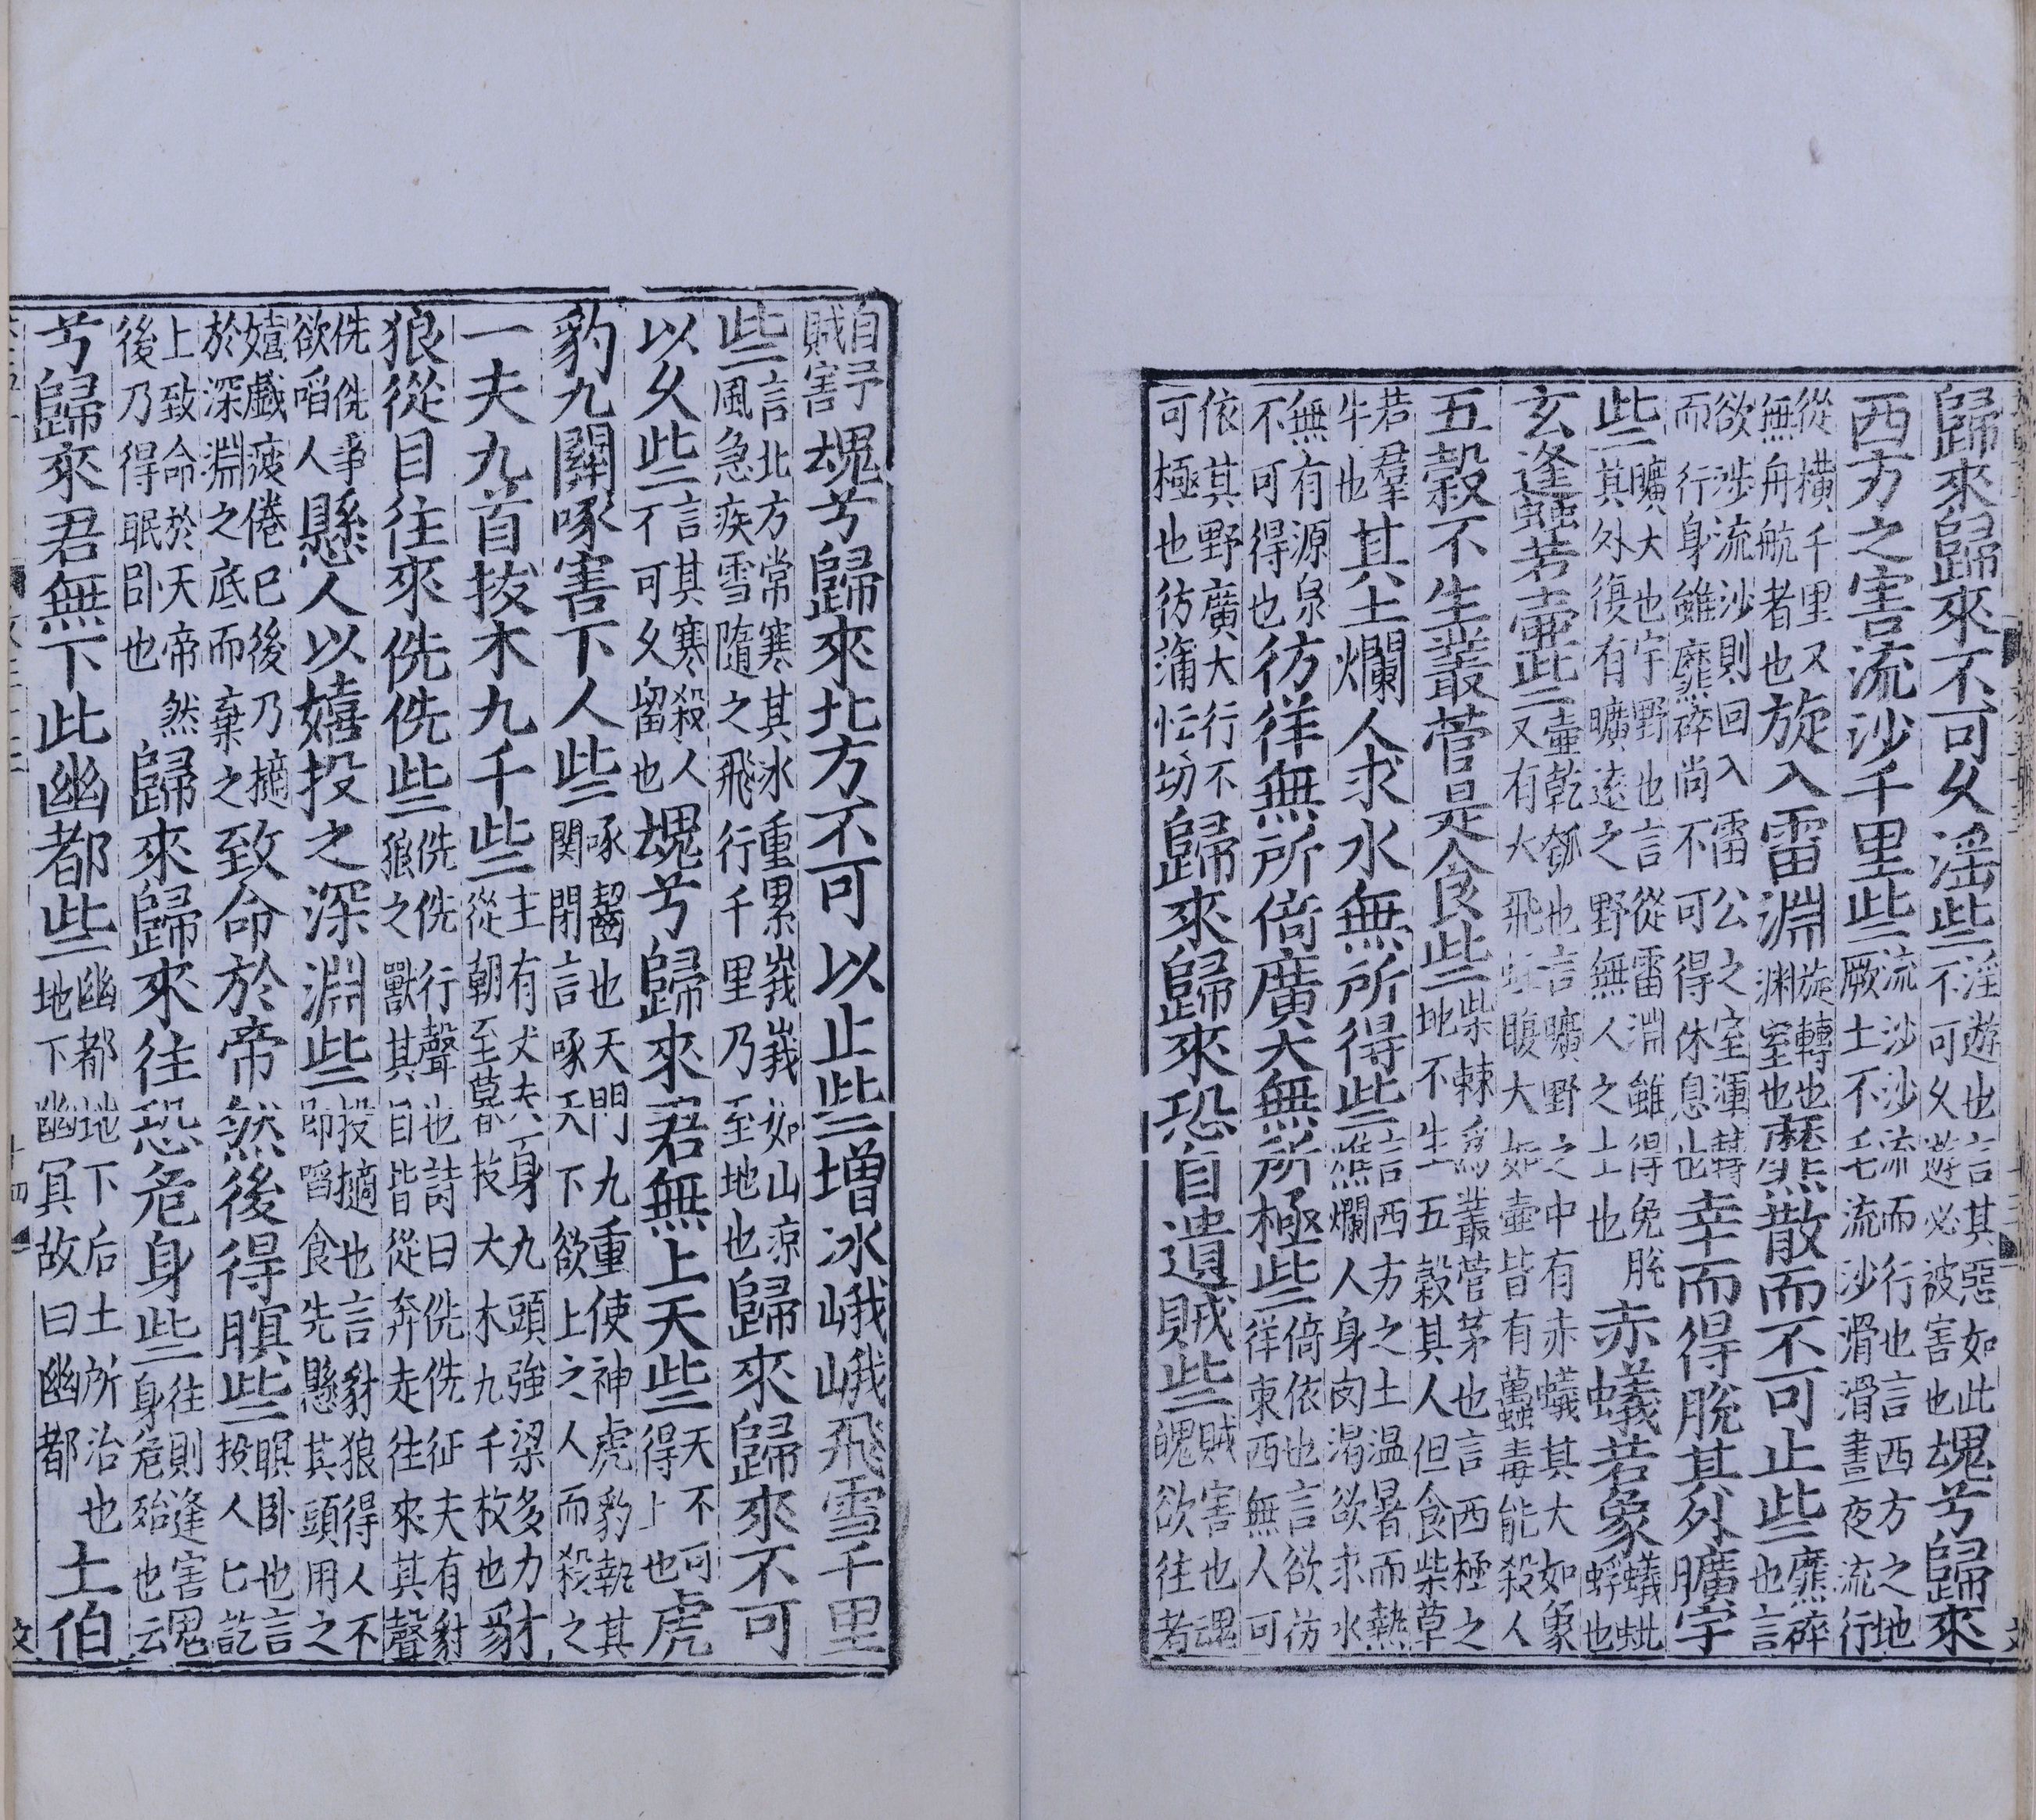 歸來歸來不可乆滛些淫遊也言其惡如此不可乆遊必被害也䰟兮歸來
西方之害流沙千里些流沙沙流而行也言西方之地厥土不毛流沙滑滑晝夜流行
從橫千里又無舟航者也旋入雷淵旋轉也淵室也𪎭散而不可止些𪎭碎也言
欲涉流沙則回入雷公之室運轉而行身雖𪎭碎尚不可得休息也幸而得脫其外曠宇
些曠大也宇野也言從雷淵雖得免脫其外復有曠遠之野無人之土也赤蟻若象蟻蚍蜉也
玄逢蟲若壷些壷乾瓠也言曠野之中有赤蟻其大如象又有大飛蜂腹大如壷皆有蠆毒能殺人
五穀不生叢菅是食些柴棘爲叢菅茅也言西極之地不生五穀其人但食柴草
若羣牛也其土爛人求水無所得些言西方之土温暑而熱燋爛人身肉渴欲求水
無有源泉不可得也彷徉無所倚廣大無所極些倚依也言欲彷徉東西無人可
依其野廣大行不可極也彷蒲忙切歸來歸來恐自遺賊些賊害也魂魄欲往者
自予賊害䰟兮歸來北方不可以止些增冰峨峨飛雪千里
些言北方常寒其冰重累峩峩如山凉風急疾雪隨之飛行千里乃至地也歸來歸來不可
以乆些言其寒殺人不可乆留也䰟兮歸來君無上天些天不可得上也虎
豹九關啄害下人些啄齧也天門九重使神虎豹執其関閉言啄天下欲上之人而殺之
一夫九首拔木九千些主有丈夫一身九頭強梁多力從朝至暮拔大木九千枚也豺
狼從目往來侁侁些侁侁行聲也詩曰侁侁征夫有豺狼之獸其目皆從奔走往來其聲
侁侁爭欲啗人懸人以嬉投之深淵些投擿也言豺狼得人不即啗食先懸其頭用之
嬉戲疲倦已後乃擿於深淵之底而棄之致命於帝然後得瞑些瞑卧也言投人已訖
上致命於天帝然後乃得眠卧也歸來歸來往恐危身些往則逢害身危殆也云
兮歸來君無下此幽都些幽都地下后土所治也地下幽冥故曰幽都土伯